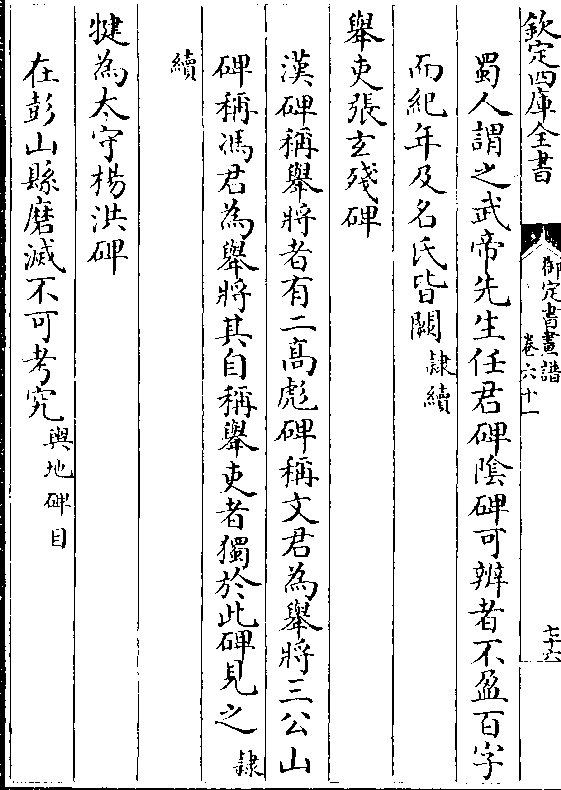 欽定四庫全書
御定書畫譜
卷六十一
七十六
蜀人謂之武帝先生任君碑隂碑可辨者不盈百字
而紀年及名氏皆闕隷續
舉吏張玄殘碑
漢碑稱舉將者有二髙彪碑稱文君為舉將三公山
碑稱馮君為舉將其自稱舉吏者獨於此碑見之隷
續
犍為太守楊洪碑
在彭山縣磨滅不可考究輿地碑目